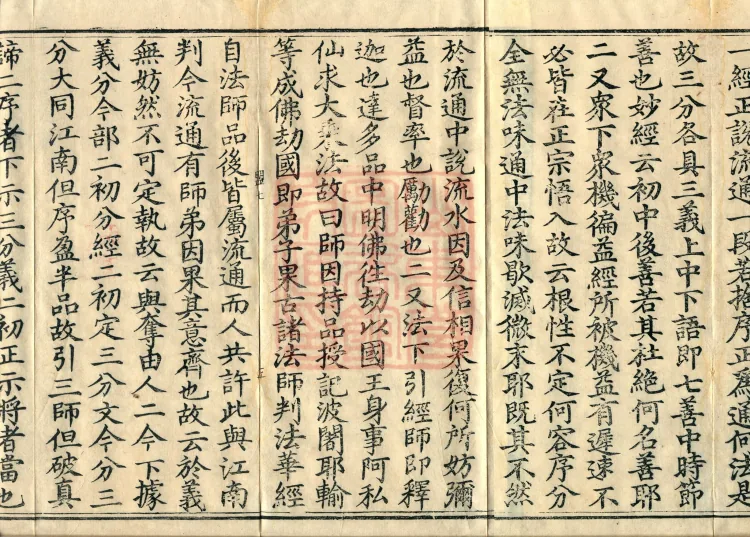 一經正說流通一段若按序正爲通何法是
故三分各具三義上中下語即七善中時節
善也妙經云初中後善若其杜絕何名善耶
二又衆下衆機徧益經所被機益有遲速不
必皆在正宗悟入故云根性不定何容序分
全無法味通中法味歇滅微末耶既其不然
於流通中說流水因及信相果復何所妨彌
益也督率也勵勸也二又法下引經師即釋
迦也達多品中明佛往劫以國王身事阿私
仙求大乘法故曰師因持品授記波闍耶輸
等成佛劫國即弟子果古諸法師判法華經
自法師品後皆屬流通而人共許此與江南
判今流通有師弟因果其意齊也故云於義
無妨然不可定執故云與奪由人二今下據
義分今部二初分經二初定三分文今分三
分大同江南但序盈半品故引三師但破真
諦二序者下示三分義二初正示將者當也